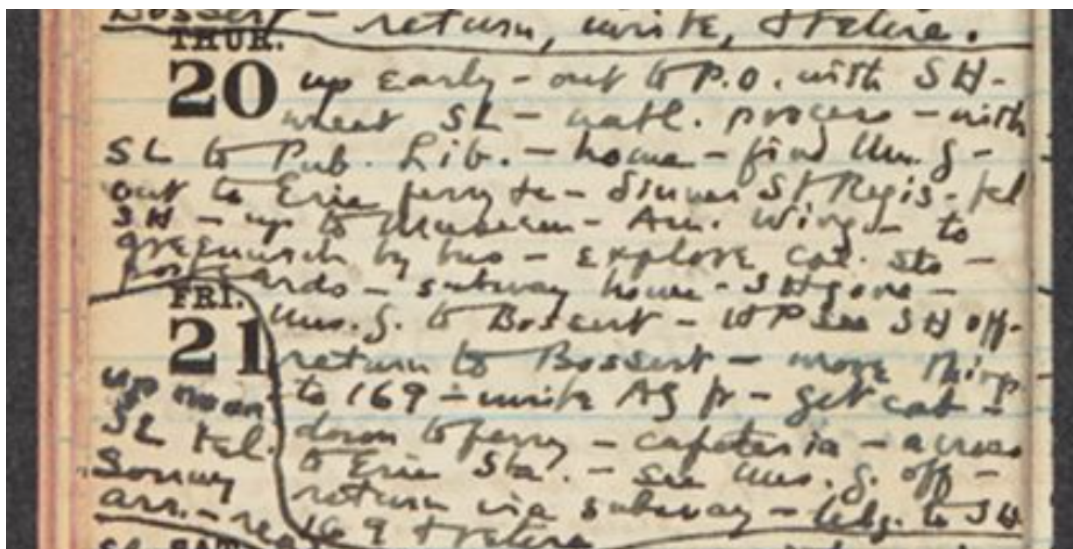 Bossert - return, write, & retire.
THUR.
20 up early - out to P.O. with SH -
meet SL - natl. progress - with
SL to Pub. Lib. - home - find Mrs. G -
out to Erie ferry tc - dinner St Regis - tel
SH - up to Museum - Am. Wing - to
Greenwich by bus - explore col. sts -
postcards - subway home - SH gone -
FRI.
Mrs. G. to Bossert - see SH off -
21 return to Bossert - move things
to 169 - write AG pr - get cat -
down to ferry - cafeteria - across
to Erie Sta. - see Mrs. G. off -
return via subway - to SH
169 & retire
up noon
SL tel.
Sonny
arr. -
SAT